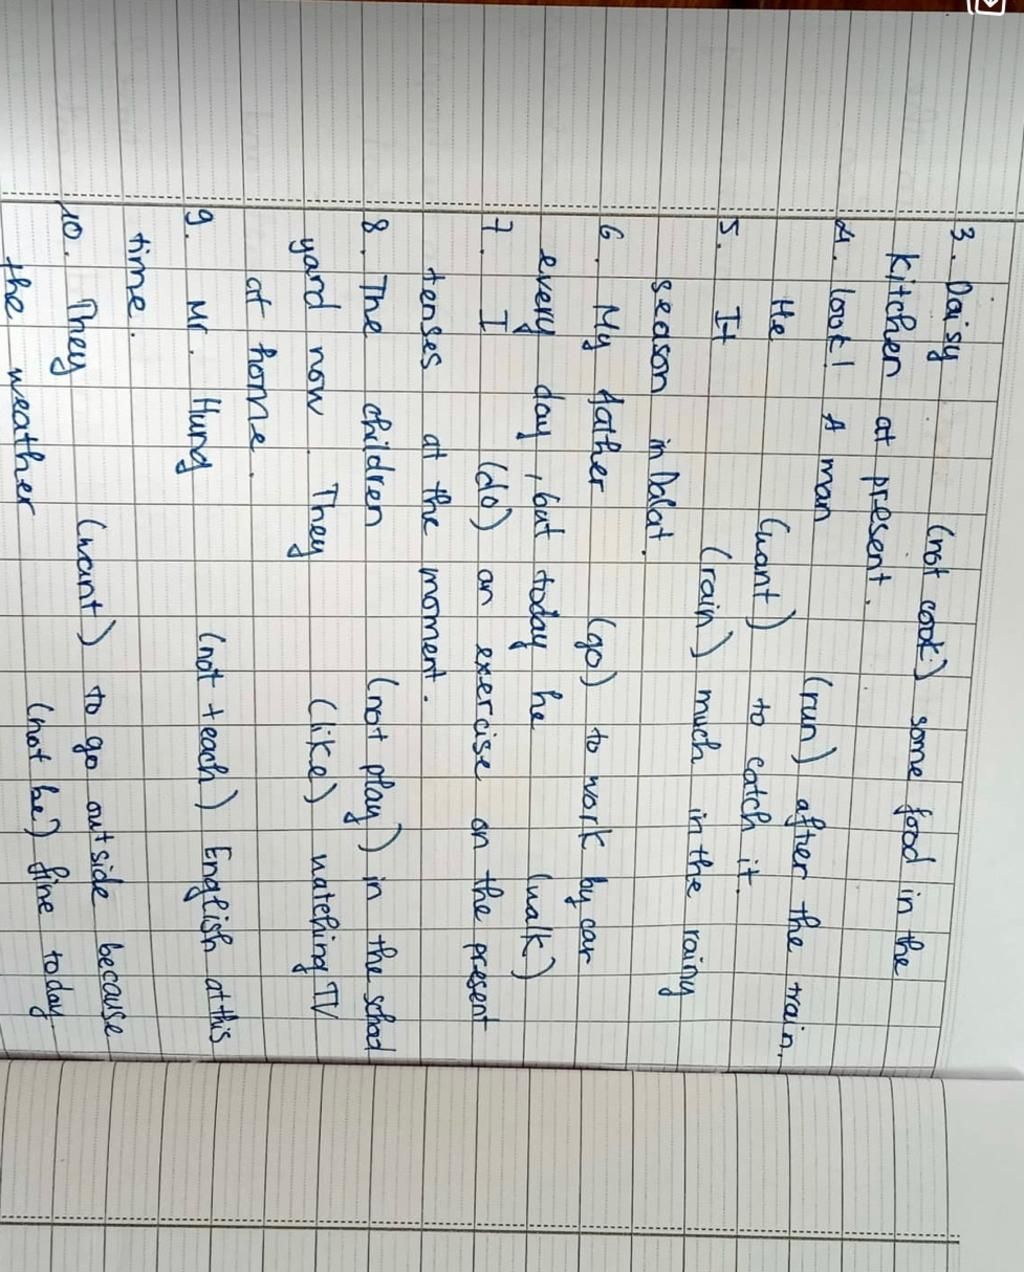 3. Daisy (not cook) some food in the
kitchen at present.
4. look! A man (run) after the train.
He (want) to catch it.
5. It (rain) much in the rainy
season in Dalat.
6. My father (go) to work by car
every day, but today he (walk)
7. I (do) an exercise on the present
tenses at the moment.
8. The children (not play) in the school
yard now. They (like) watching TV
at home.
9. Mr. Hung (not teach) English at this
time.
10. They (want) to go outside because
the weather (not be) fine today